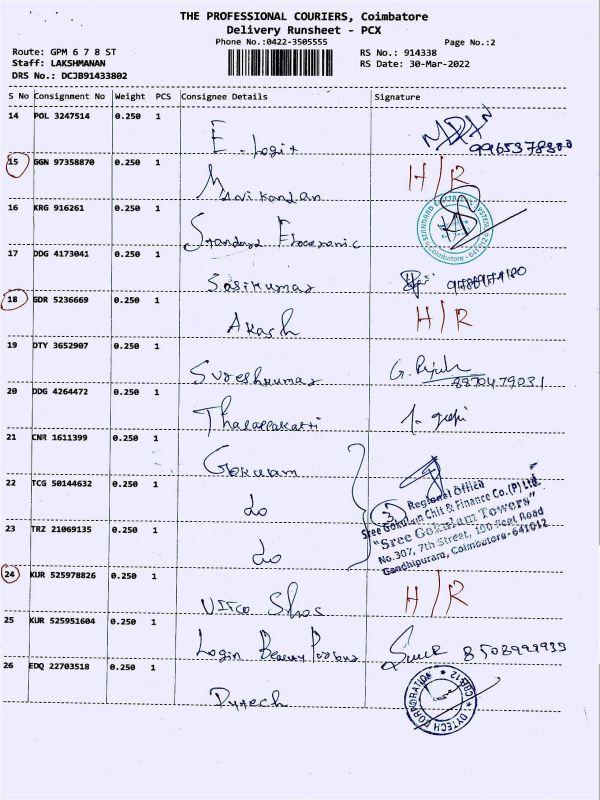 THE PROFESSIONAL COURIERS, Coimbatore
Delivery Runsheet - PCX
Phone No.:0422-3505555
Page No.:2
Route: GPM 6 7 8 ST
RS No.: 914338
Staff: LAKSHMANAN
RS Date: 30-Mar-2022
DRS No.: DCJB91433802
S No Consignment No Weight PCS Consignee Details Signature
14 POL 3247514 0.250 1
E - Logix
15 GGN 97358870 0.250 1 H/R
Manikandan
16 KRG 916261 0.250 1
Standard Electronic
17 DDG 4173041 0.250 1
Sasikumar
18 GDR 5236669 0.250 1 H/R
Akash
19 DTY 3652907 0.250 1
Sureshkumar
8870479031
20 DDG 4264472 0.250 1
21 CNR 1611399 0.250 1
Gokulam
22 TCG 50144632 0.250 1
do
23 TRZ 21069135 0.250 1
do
3
Regional Office
Sree Gokulam Chit & Finance Co. (P) Ltd.
"Sree Gokulam Towers"
No.307, 7th Street, 100 Feet Road
Gandhipuram, Coimbatore-641012
24 KUR 525978826 0.250 1 H/R
25 KUR 525951604 0.250 1
Login Beauty
26 EDQ 22703518 0.250 1
Dytech
DYTECH CORPORATION
CBE-12